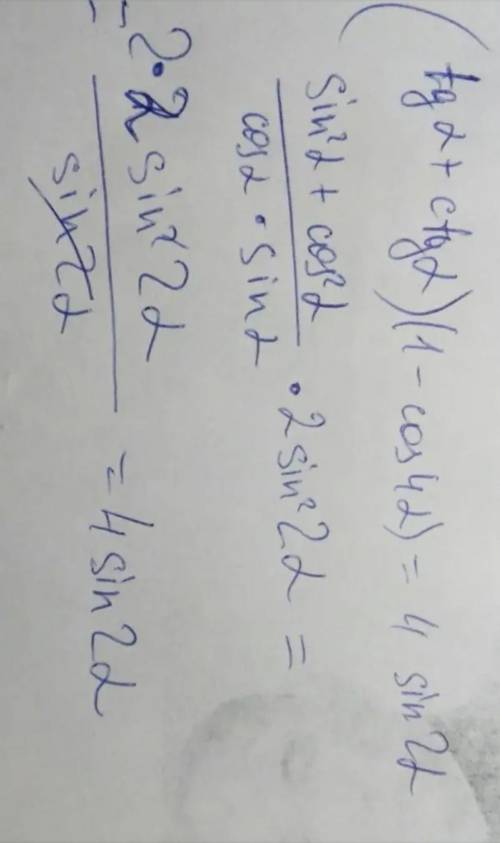 (tg α + ctg α)(1 - cos 4α) = 4 sin 2α
sin²α + cos²α / cos α · sin α · 2 sin² 2α =
= 2 · 2 sin² 2α / sin 2α = 4 sin 2α